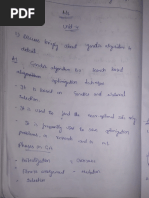 Unit - 5
1) Discuss briefly about genetic algorithm in
detail.
A) Genetic algorithm is search based
optimization technique
- It is based on Genetics and natural
selection.
- It is used to find the near optimal sol
- It is frequently used to solve optimization
problems in research
Phases in GA
- Initialization - Crossover
- Fitness assignment - Mutation
- Selection